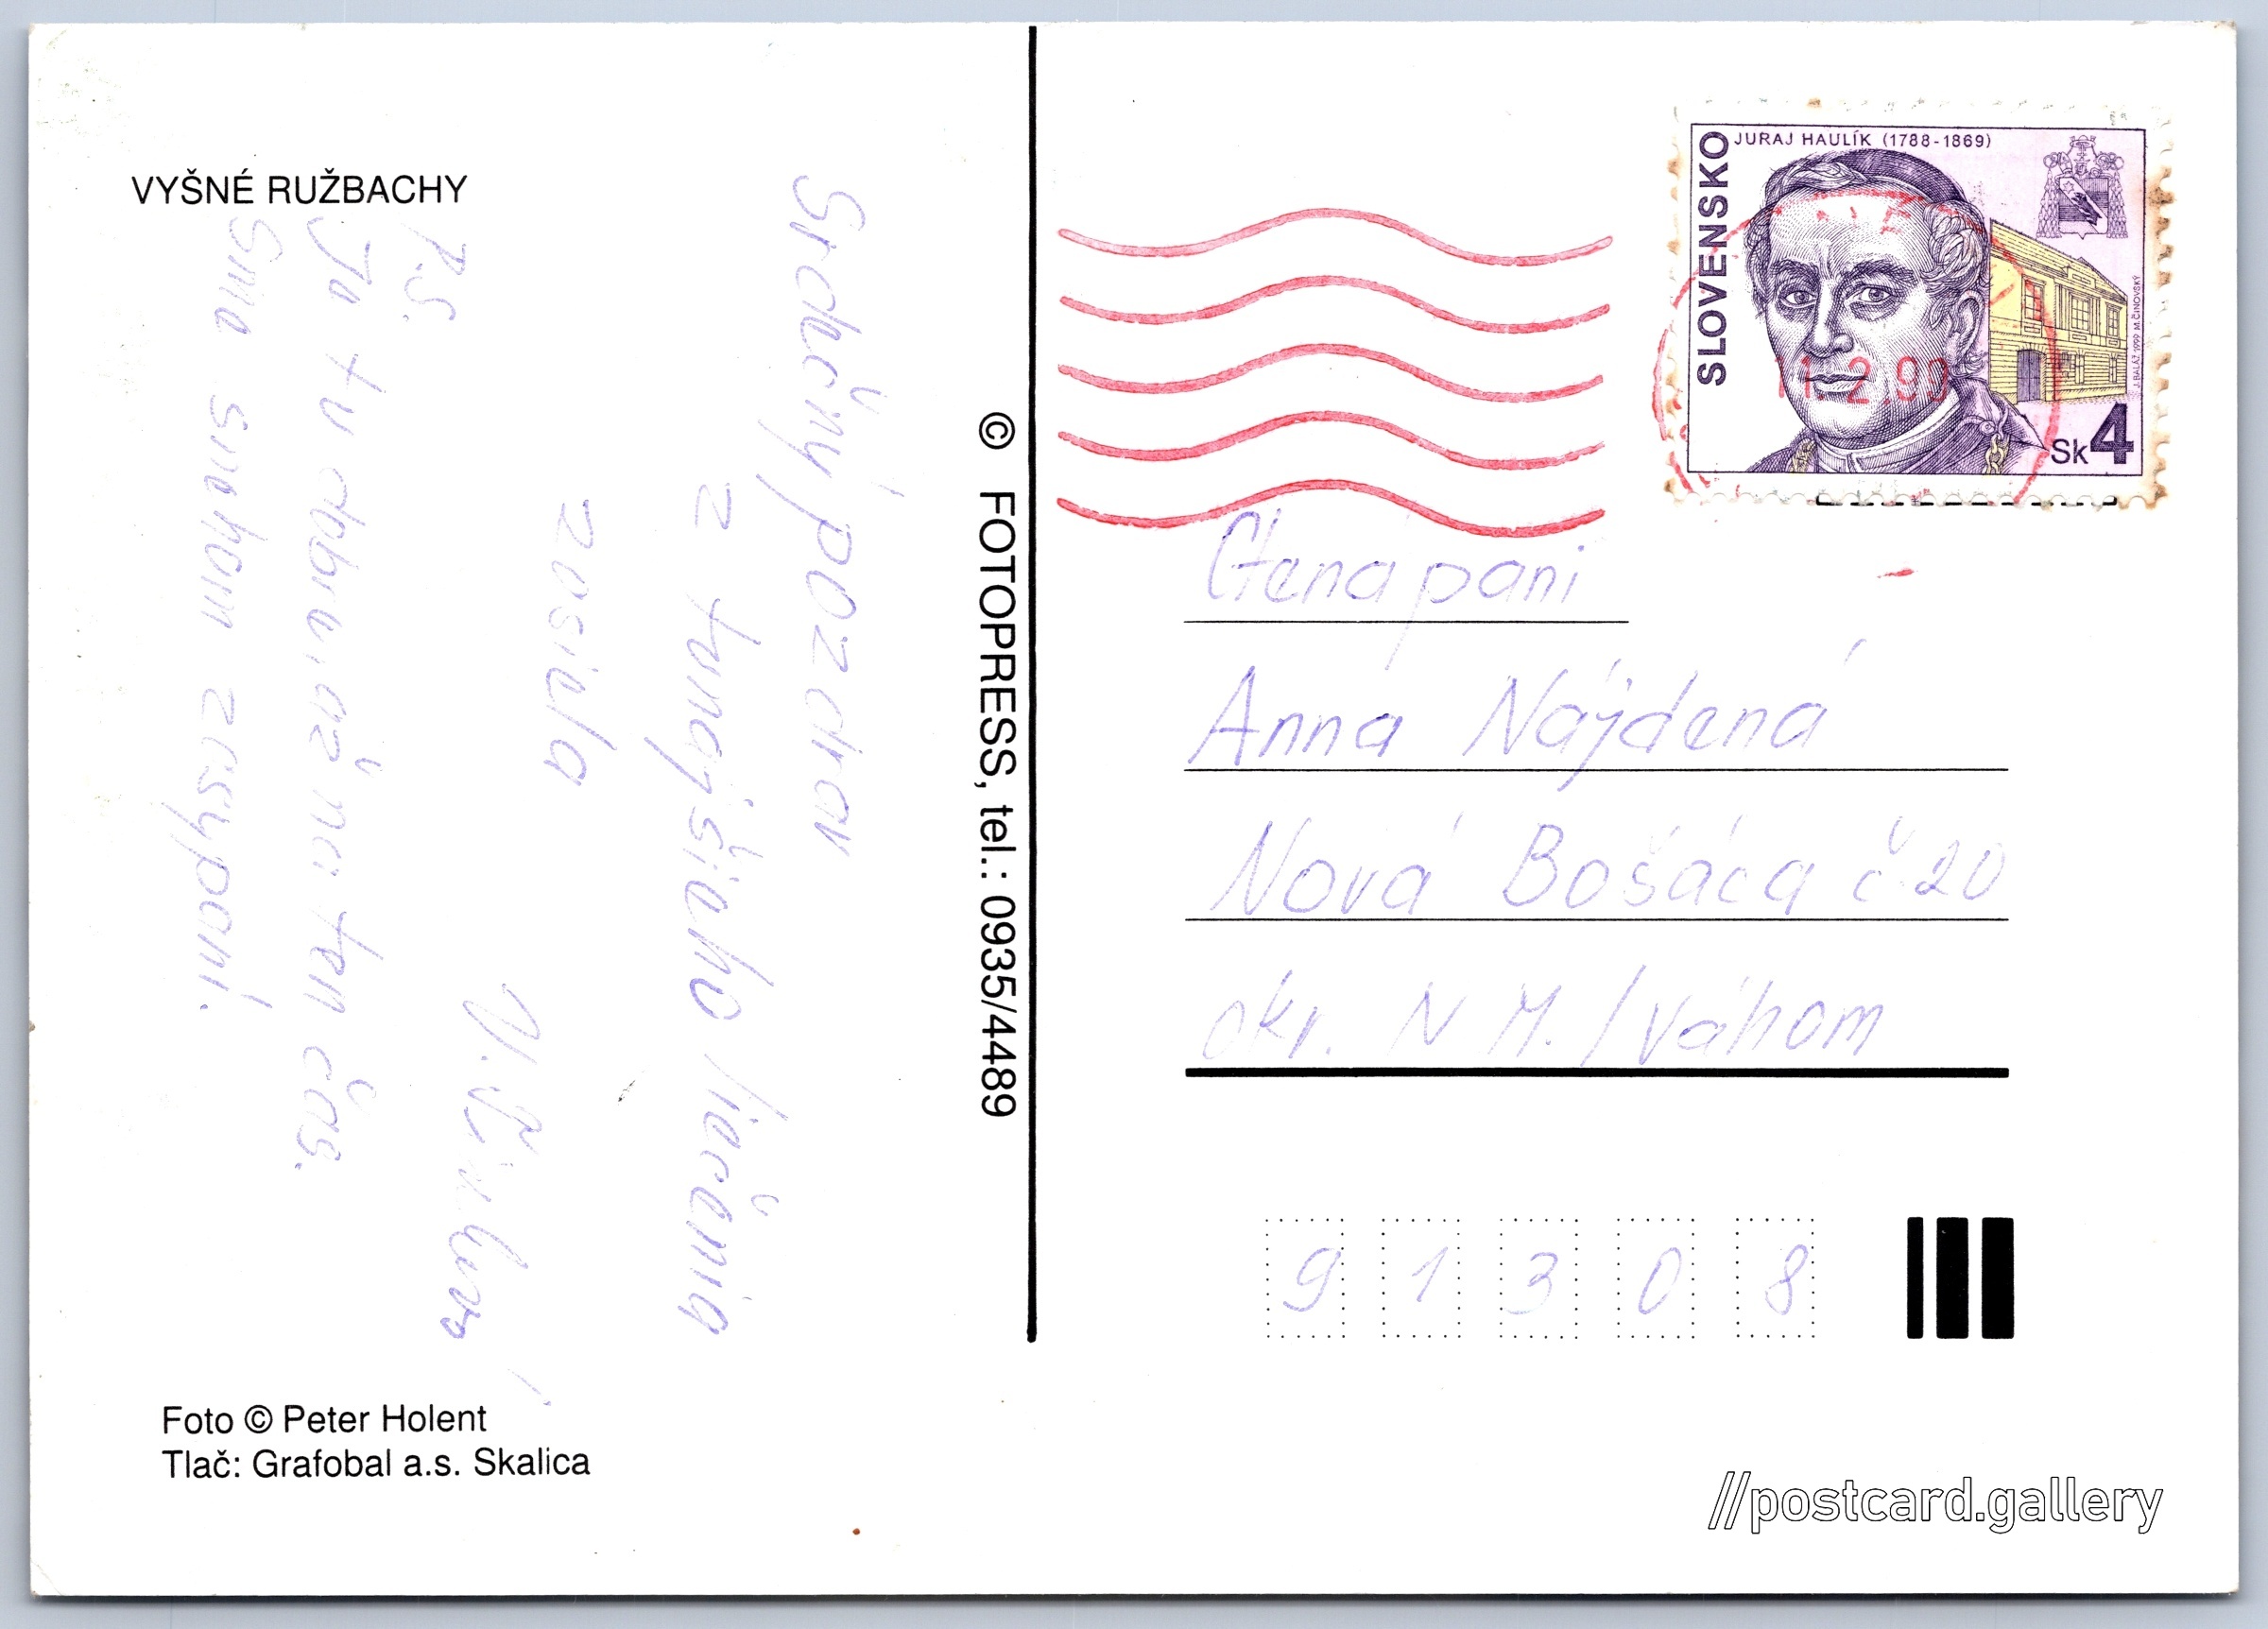 VYŠNÉ RUŽBACHY
Srdečný pozdrav
z tunajšieho liečenia
zosiela
P.S.
Je tu dobre, až na ten čas.
Sme snehom zasypaní.
Foto © Peter Holent
Tlač: Grafobal a.s. Skalica
© FOTOPRESS, tel.: 0935/4489
SLOVENSKO
JURAJ HAULÍK (1788-1869)
J. BALÁŽ 1999 M. ČINOVSKÝ
Sk 4
11.2.99
Ctena pani
Anna Nájdená
Nová Bošáca č 20
okr. N M. / Váhom
91308
//postcard.gallery